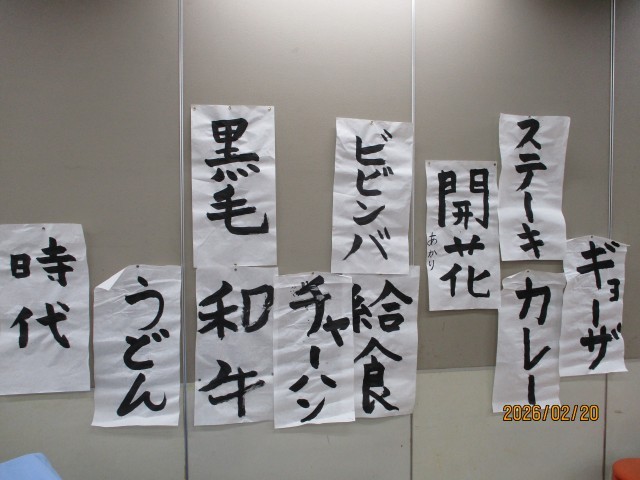 時代
うどん
黒毛
和牛
チャーハン
ビビンバ
給食
開花
あかり
ステーキ
カレー
ギョーザ
2026/02/20